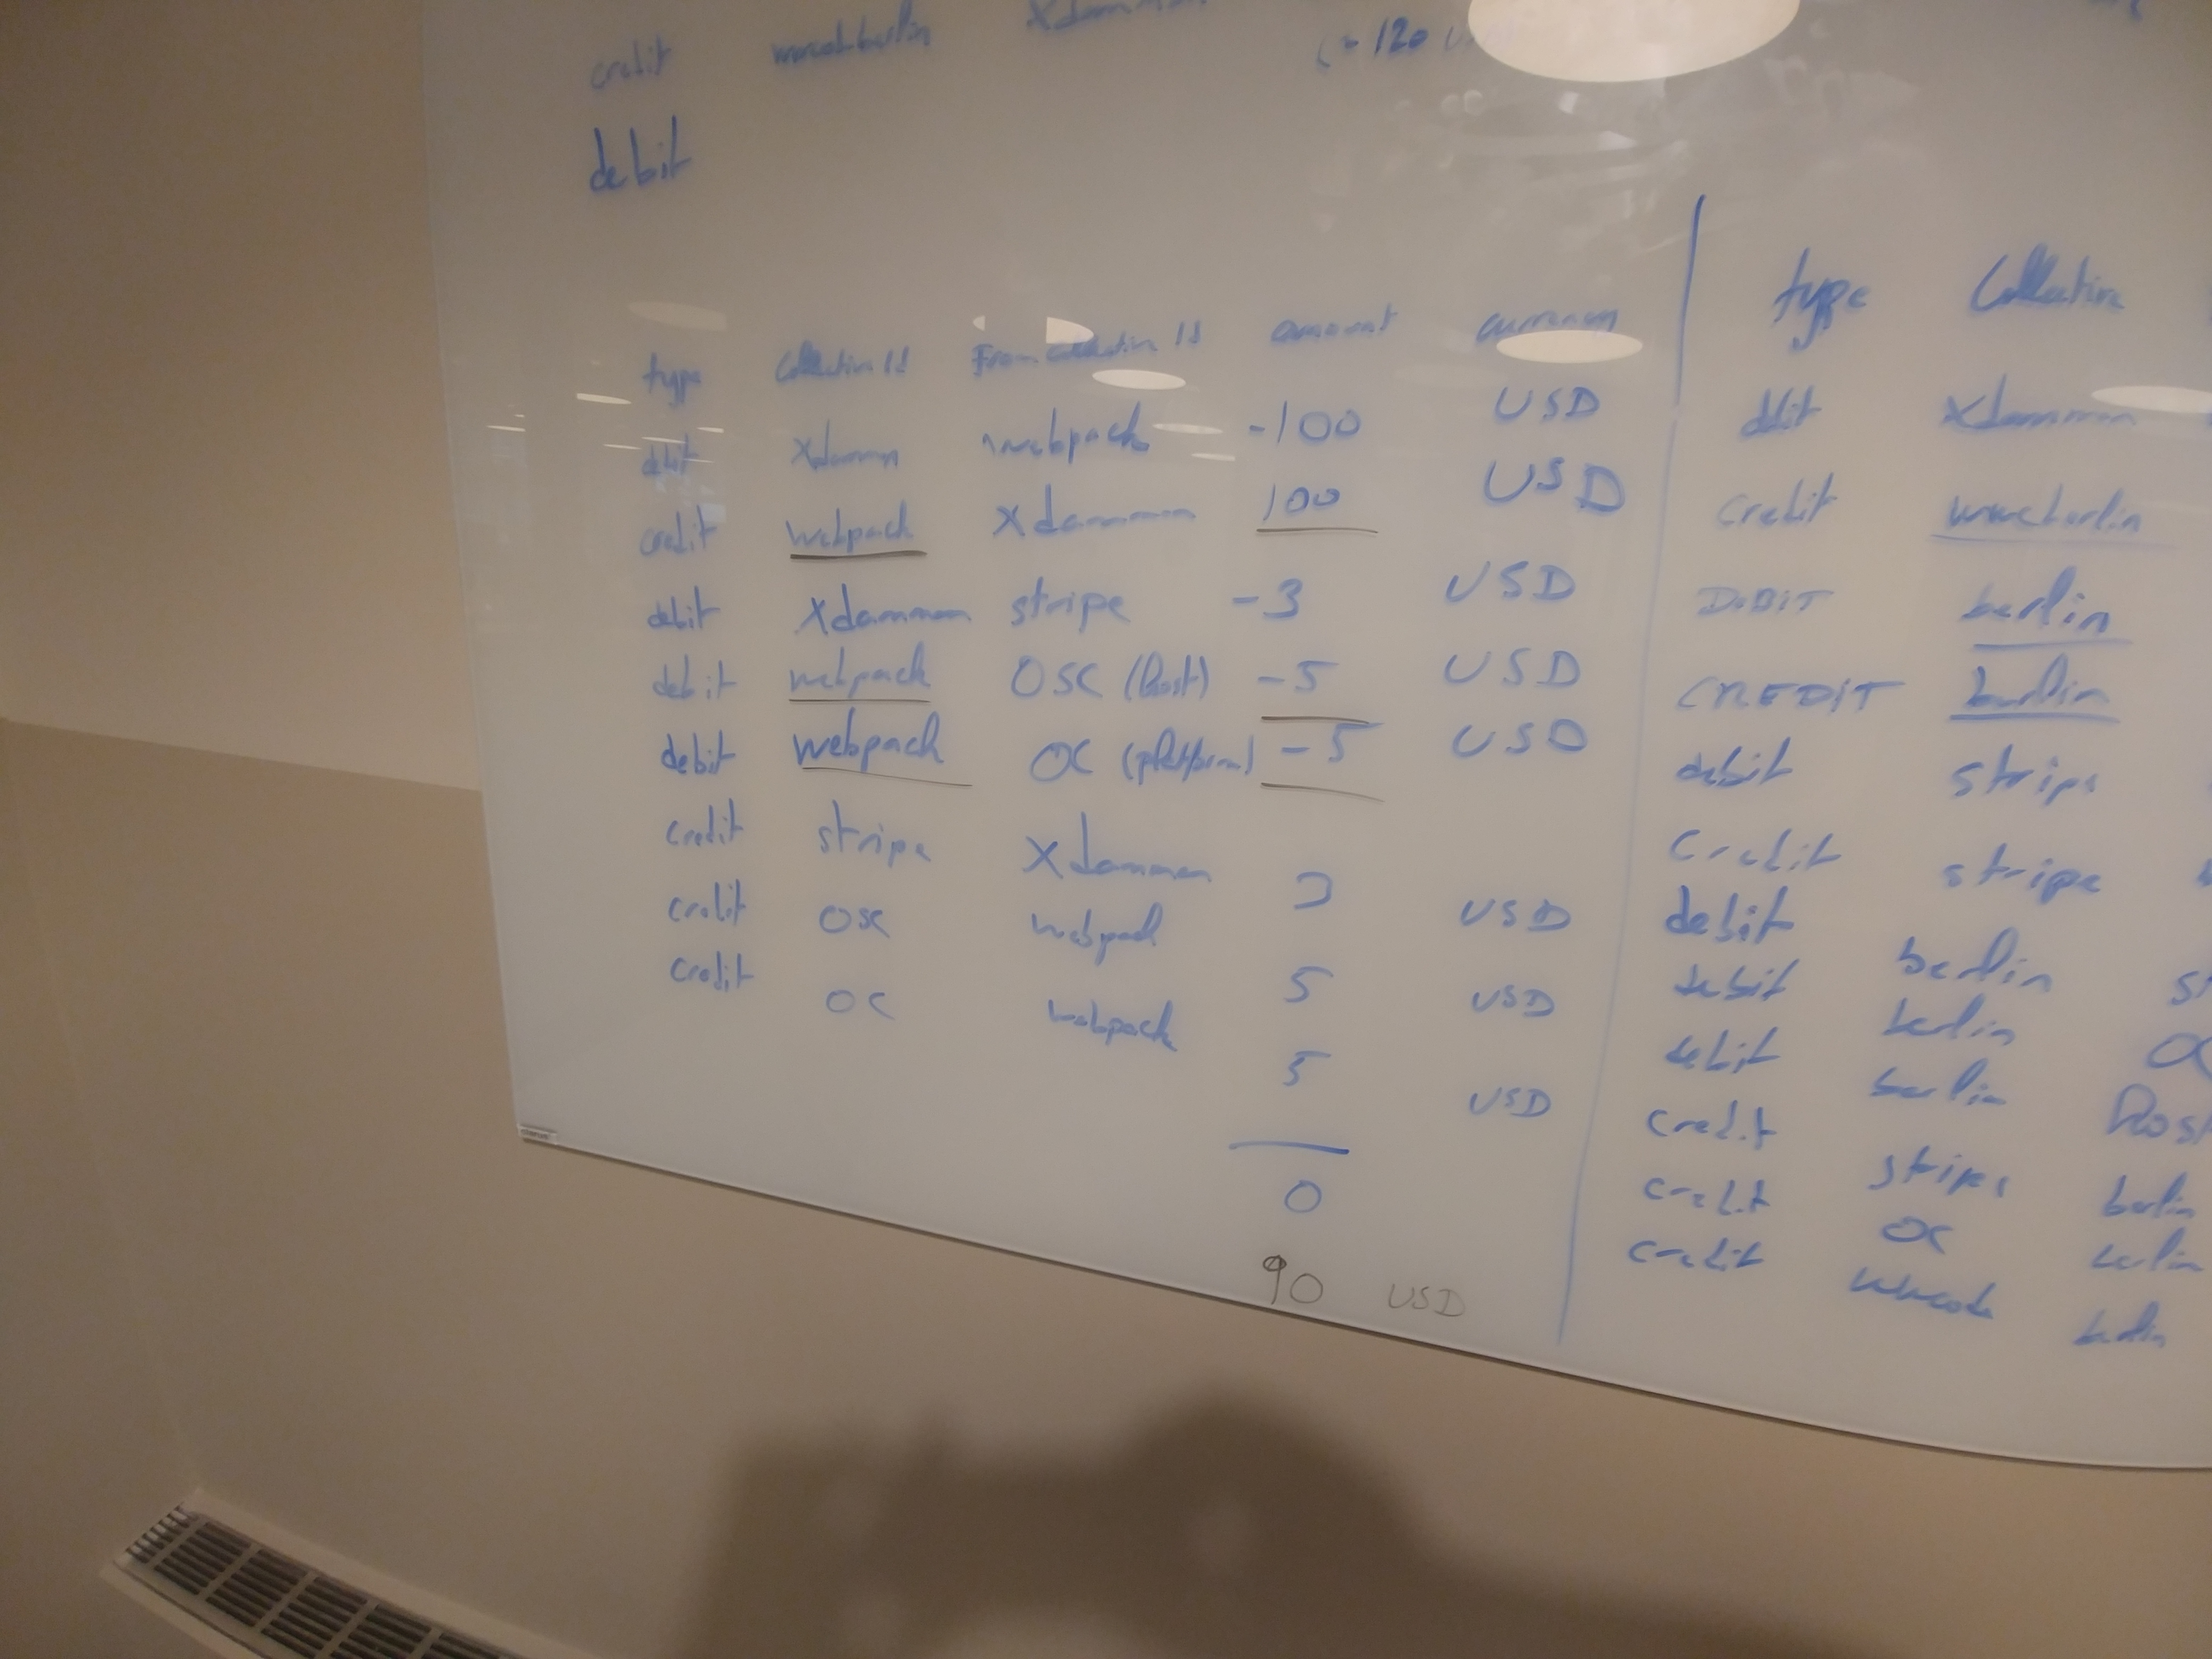 credit
(= 120
debit
type Collective Id From Collective Id amount currency
debit xdamman webpack -100 USD
credit webpack Xdamman 100 USD
debit Xdamman stripe -3 USD
debit webpack OSC (host) -5 USD
debit webpack OC (platform) -5 USD
credit stripe Xdamman 3 USD
credit OSC webpack 5 USD
credit OC webpack 5 USD
0
90 USD
type Collective
debit Xdamman
credit wwcberlin
DEBIT berlin
CREDIT berlin
debit stripe
Credit stripe
debit berlin
debit berlin
debit berlin
credit stripe berlin
credit OC berlin
credit wwcode berlin